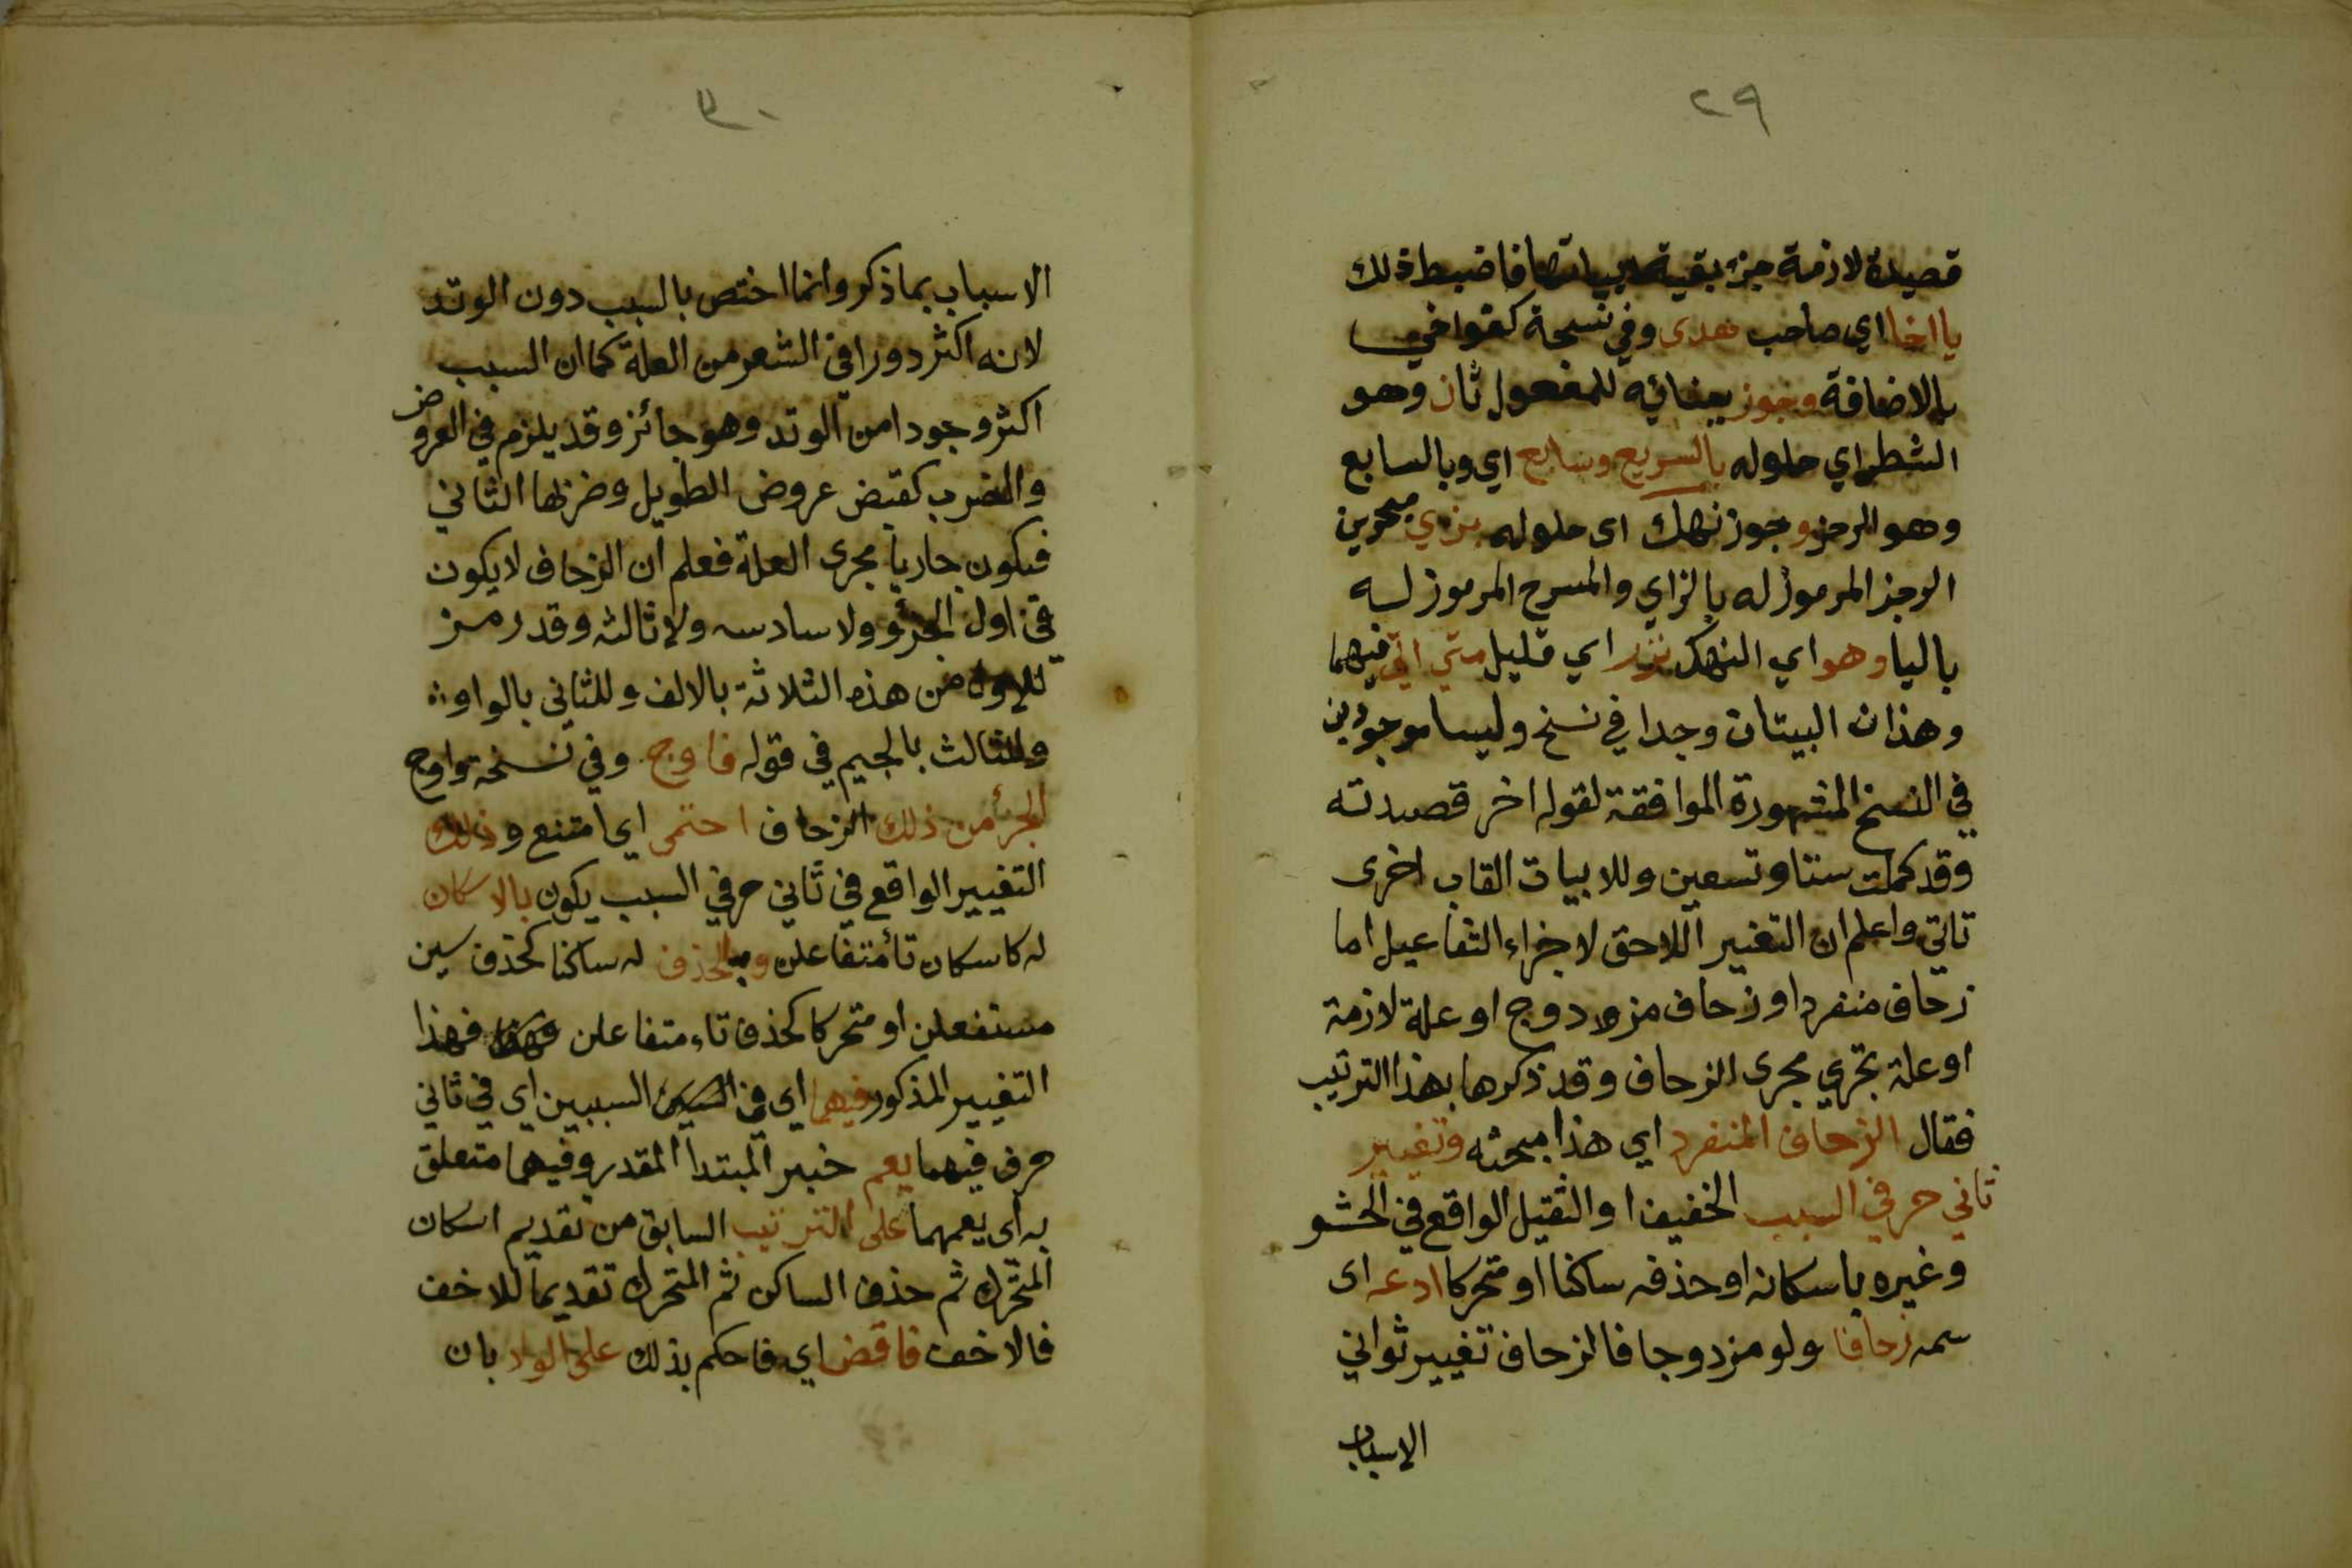 ٢٩
قصيدة لازمة جزء بقية ابياتها فاضبط ذلك
يا اخا اي صاحب هدى وفي نسخة كقوافي
بالاضافة وجوز ببنائه للمفعول ثان وهو
الشطر اي حلوله بالسريع وسابع اي وبالسابع
وهو الرجز وجوز نهك اى حلوله بزي بحرين
الرجز المرموز له بالزاي والمنسرح المرموز له
باليا وهو اي النهك نزر اي قليل متي اتي فيهما
وهذان البيتان وجدا في نسخ وليسا موجودين
في النسخ المشهورة الموافقة لقوله اخر قصيدته
وقد كملت ستا وتسعين وللابيات القاب اخرى
تاتي واعلم ان التغيير اللاحق لاجزاء التفاعيل اما
زحاف منفرد او زحاف مزدوج او علة لازمة
او علة تجري مجرى الزحاف وقد ذكرها بهذا الترتيب
فقال الزحاف المنفرد اي هذا مبحثه وتغيير
ثاني حرفي السبب الخفيف او الثقيل الواقع في الحشو
وغيره باسكانه او حذفه ساكنا او متحركا ادعه اى
سمه زحافا ولو مزدوجا فالزحاف تغيير ثواني
الاسباب
٣٠
الاسباب بما ذكر وانما اختص بالسبب دون الوتد
لانه اكثر دورا في الشعر من العلة كما ان السبب
اكثر وجودا من الوتد وهو جائز وقد يلزم في العروض
والضرب كقبض عروض الطويل وضربها الثاني
فيكون جاريا مجرى العلة فعلم ان الزحاف لا يكون
في اول الجزؤ ولا سادسه ولا ثالثه وقد رمز
للاول من هذه الثلاثة بالالف وللثاني بالواو
وللثالث بالجيم في قوله فاوج وفي نسخة واوج
الجزأ من ذلك الزحاف احتمى اي امتنع وذلك
التغيير الواقع في ثاني حرفي السبب يكون بالاسكان
له كاسكان تأ متفاعلن وبالحذف له ساكنا كحذف سين
مستفعلن او متحركا كحذف تاء متفاعلن فهذا
التغيير المذكور فيهما اى في السببين اي في ثاني
حرف فيهما يعم خبر المبتدا المقدر وفيهما متعلق
به اى يعمهما على الترتيب السابق من تقديم اسكان
المتحرك ثم حذف الساكن ثم المتحرك تقديما للاخف
فالاخف فاقض اي فاحكم بذلك على الولا بان